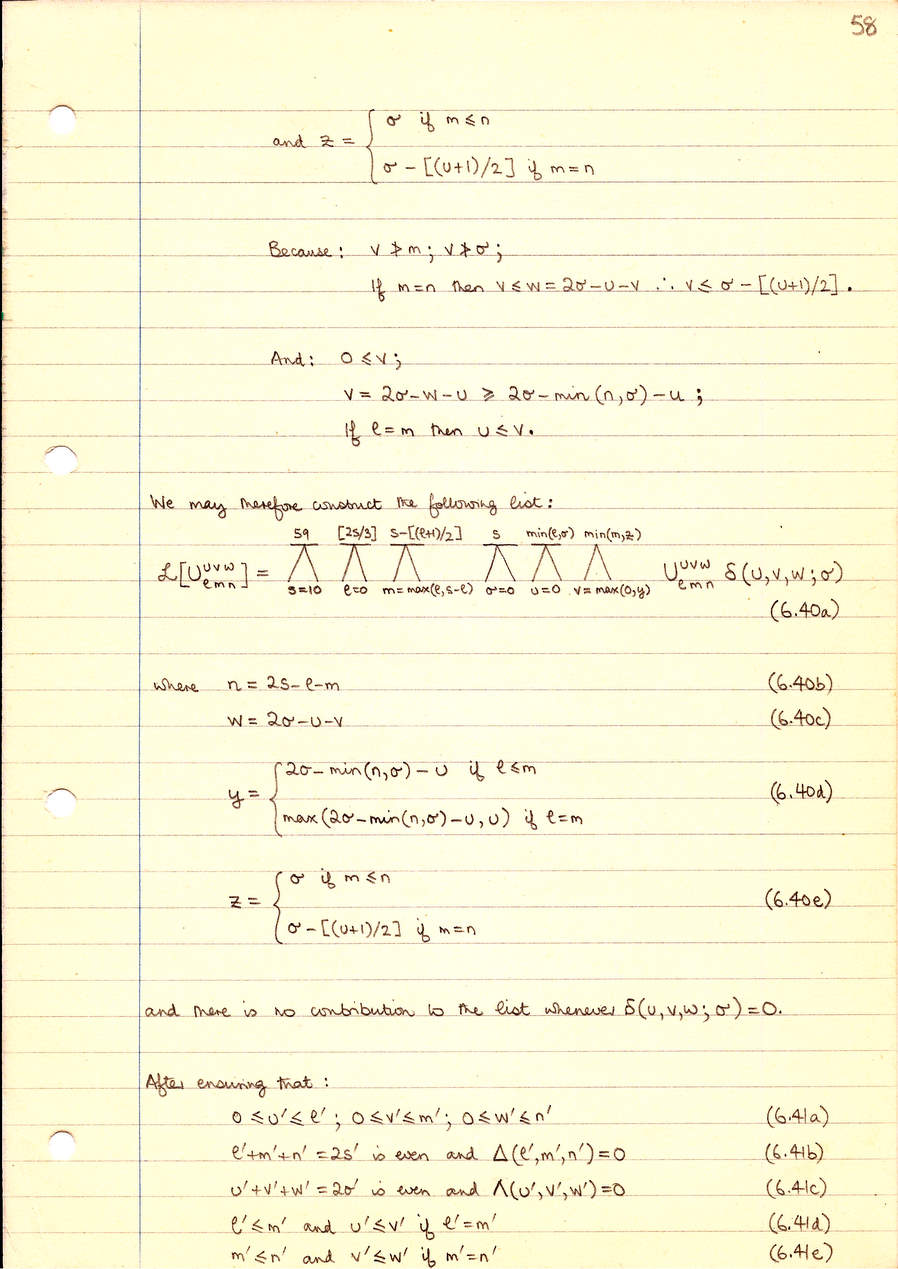 58
and z = { σ if m ≤ n
σ - [(u+1)/2] if m = n
Because: v ≯ m; v ≯ σ;
If m=n then v ≤ w = 2σ-u-v ∴ v ≤ σ - [(u+1)/2].
And: 0 ≤ v;
v = 2σ-w-u ≥ 2σ-min(n,σ)-u;
If ℓ=m then u ≤ v.
We may therefore construct the following list:
59 [2s/3] s-[(ℓ+1)/2] s min(ℓ,σ) min(m,z)
ℒ[U^{uvw}_{ℓmn}] = Λ Λ Λ Λ Λ Λ U^{uvw}_{ℓmn} δ(u,v,w;σ)
s=10 ℓ=0 m=max(ℓ,s-ℓ) σ=0 u=0 v=max(0,y)
(6.40a)
where n = 2s-ℓ-m (6.40b)
w = 2σ-u-v (6.40c)
y = { 2σ-min(n,σ)-u if ℓ≤m
max(2σ-min(n,σ)-u,u) if ℓ=m (6.40d)
z = { σ if m≤n
σ-[(u+1)/2] if m=n (6.40e)
and there is no contribution to the list whenever δ(u,v,w;σ)=0.
After ensuring that:
0≤u'≤ℓ'; 0≤v'≤m'; 0≤w'≤n' (6.41a)
ℓ'+m'+n'=2s' is even and Δ(ℓ',m',n')=0 (6.41b)
u'+v'+w'=2σ' is even and Λ(u',v',w')=0 (6.41c)
ℓ'≤m' and u'≤v' if ℓ'=m' (6.41d)
m'≤n' and v'≤w' if m'=n' (6.41e)